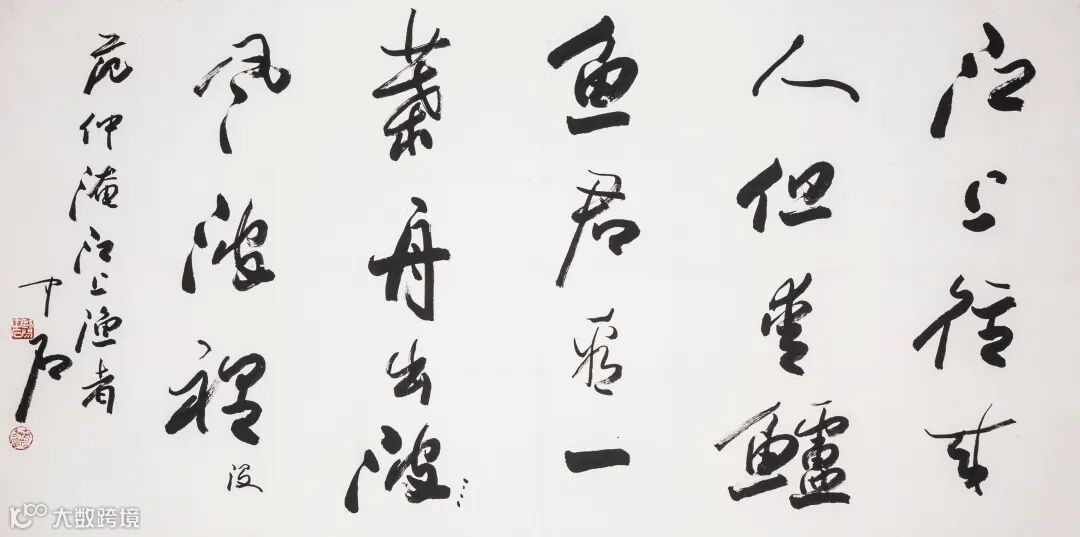 江上往来
人但爱鱸
鱼君看一
葉舟出波
风波裡
没
范仲淹江上渔者
中石
大数跨境